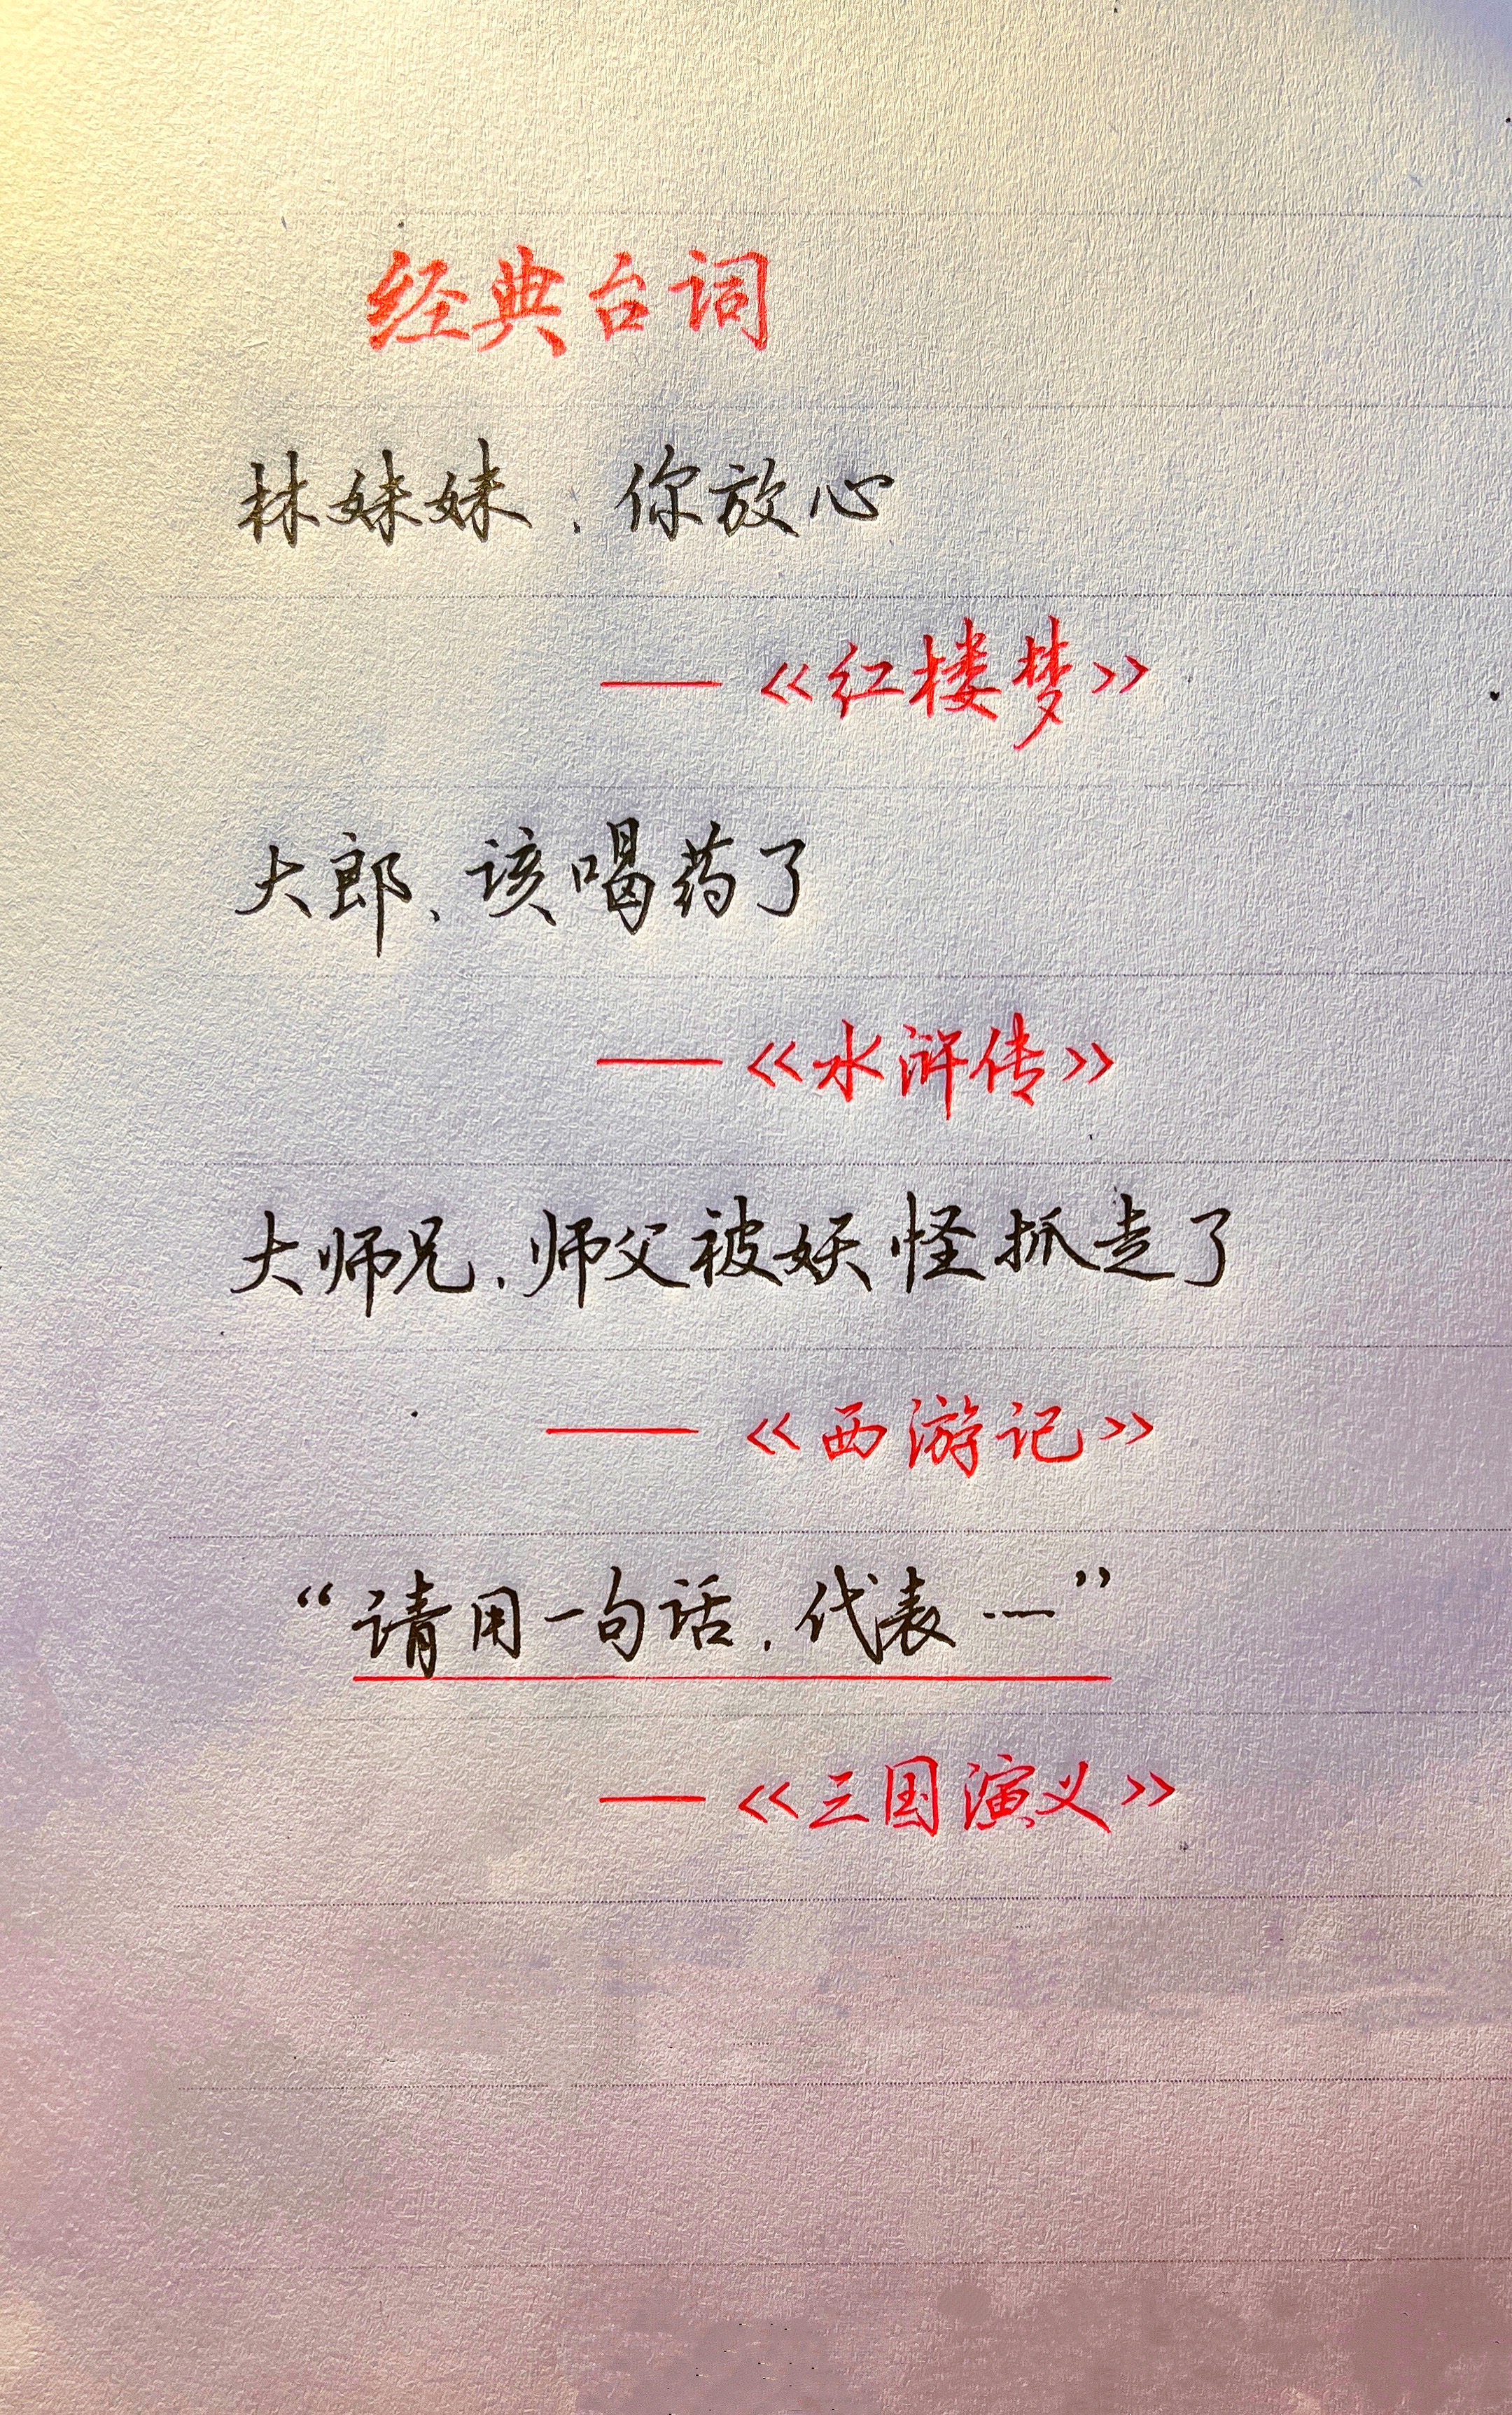 经典台词
林妹妹，你放心
——《红楼梦》
大郎、该喝药了
——《水浒传》
大师兄，师父被妖怪抓走了
——《西游记》
“请用一句话，代表……”
——《三国演义》